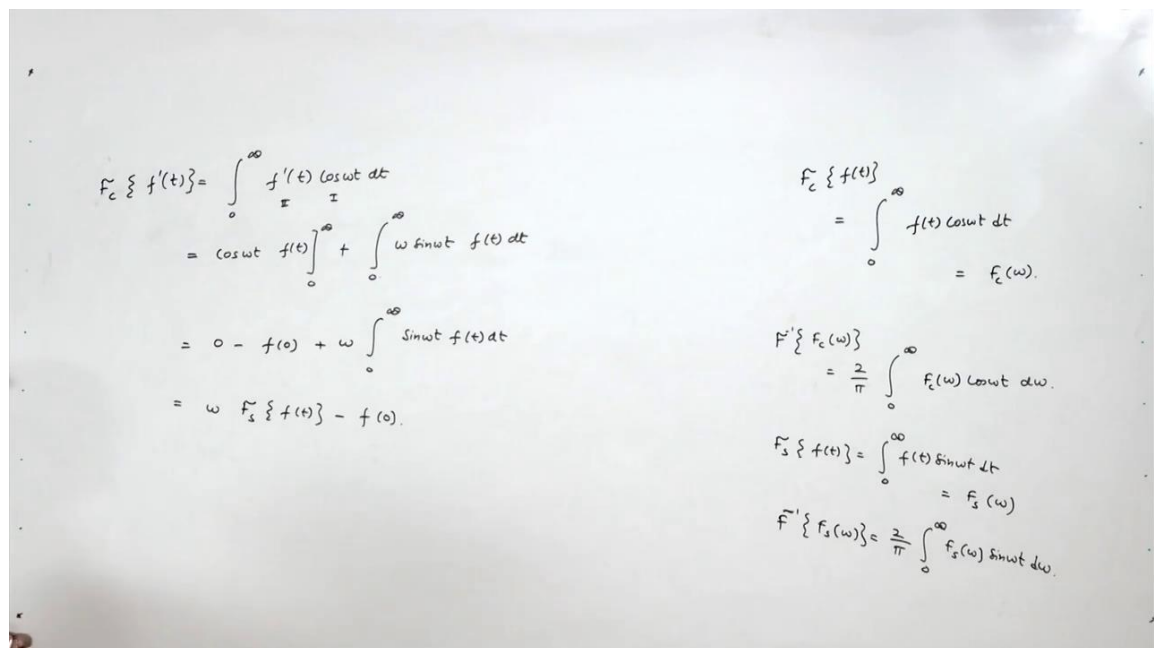 F_c { f'(t)} = ∫_0^∞ f'(t) cos ωt dt
II I
= cos ωt f(t) ]_0^∞ + ∫_0^∞ ω sin ωt f(t) dt
= 0 - f(0) + ω ∫_0^∞ sin ωt f(t) dt
= ω F_s { f(t)} - f(0).
F_c { f(t)}
= ∫_0^∞ f(t) cos ωt dt
= F_c(ω).
F^-1 { F_c(ω)}
= 2/π ∫_0^∞ F_c(ω) cos ωt dω.
F_s { f(t)} = ∫_0^∞ f(t) sin ωt dt
= F_s(ω)
F^-1 { F_s(ω)} = 2/π ∫_0^∞ F_s(ω) sin ωt dω.